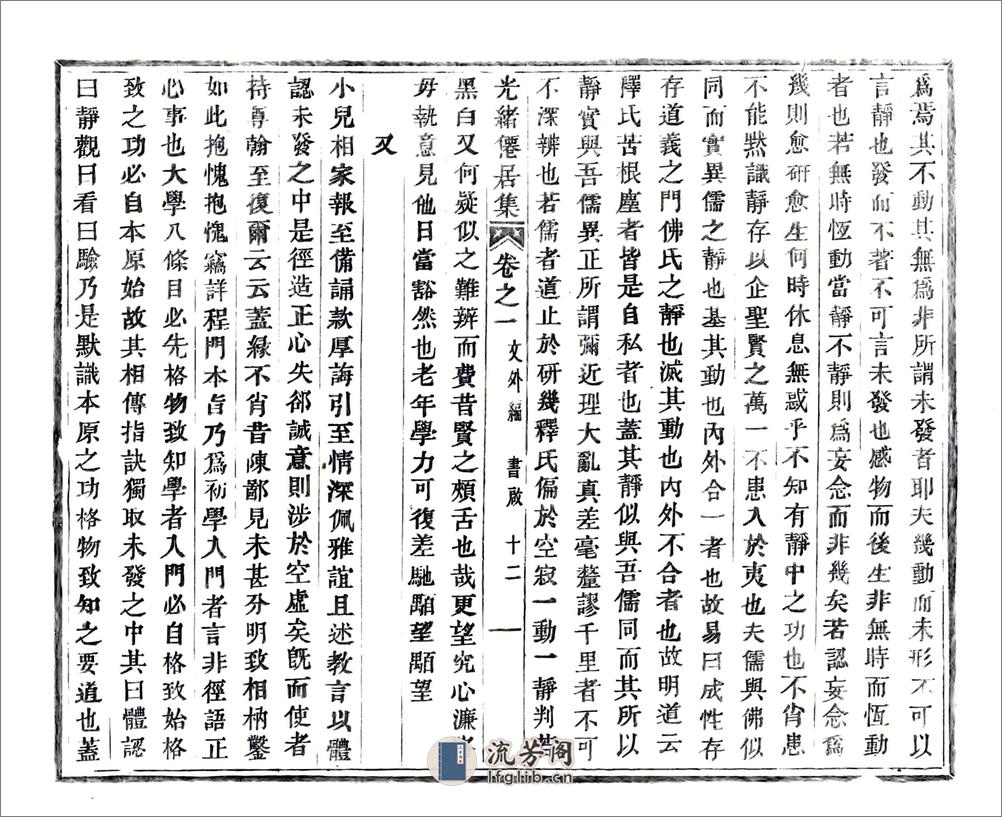 爲焉其不動其無爲非所謂未發者耶夫幾動而未形不可以
言靜也發而不著不可言未發也感物而後生非無時而恆動
者也若無時恆動當靜不靜則爲妄念而非幾矣若認妄念爲
幾則愈研愈生何時休息無惑乎不知有靜中之功也不肯患
不能默識靜存以企聖賢之萬一不患入於夷也夫儒與佛似
同而實異儒之靜也基其動也內外合一者也故易曰成性存
存道義之門佛氏之靜也滅其動也內外不合者也故明道云
釋氏苦根塵者皆是自私者也蓋其靜似與吾儒同而其所以
靜實與吾儒異正所謂彌近理大亂真差毫釐謬千里者不可
不深辨也若儒者道止於研幾釋氏偏於空寂一動一靜判若
光緒僊居集 卷之一 文外編 書啟 十二
黑白又何疑似之難辨而費昔賢之頰舌也哉更望究心濂
毋執意見他日當豁然也老年學力可復差馳顒望顒望
又
小兒相家報至備誦款厚誨引至情深佩雅誼且述教言以體
認未發之中是徑造正心失郤誠意則涉於空虛矣既而使者
持尊翰至復爾云云蓋緣不肖昔陳鄙見未甚分明致相枘鑿
如此抱愧抱愧竊詳程門本旨乃爲初學入門者言非徑語正
心事也大學八條目必先格物致知學者入門必自格致始格
致之功必自本原始故其相傳指訣獨取未發之中其曰體認
曰靜觀曰看曰驗乃是默識本原之功格物致知之要道也蓋
流芳阁
lfglib.cn